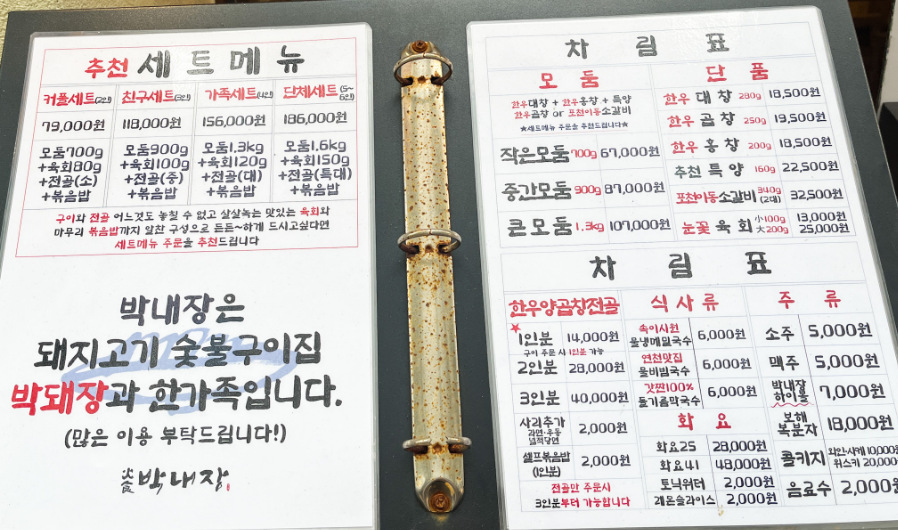 추천 세트메뉴
커플세트(2인) 친구세트(3인) 가족세트(4인) 단체세트(5~6인)
79,000원 118,000원 156,000원 186,000원
모둠700g 모둠900g 모둠1.3kg 모둠1.6kg
+육회80g +육회100g +육회120g +육회150g
+전골(소) +전골(중) +전골(대) +전골(특대)
+볶음밥 +볶음밥 +볶음밥 +볶음밥
구이와 전골 어느것도 놓칠 수 없고 살살녹는 맛있는 육회와
마무리 볶음밥까지 알찬 구성으로 든든~하게 드시고싶다면
세트메뉴 주문을 추천드립니다
박내장은
돼지고기 숯불구이집
박돼장과 한가족입니다.
(많은 이용 부탁드립니다!)
박내장
차림표
모둠
한우대창 + 한우홍창 + 특양
한우곱창 or 포천이동소갈비
★세트메뉴 주문을 추천드립니다★
작은모둠 700g 67,000원
중간모둠 900g 87,000원
큰모둠 1.3kg 107,000원
단품
한우 대창 280g 18,500원
한우 곱창 250g 19,500원
한우 홍창 200g 18,500원
추천 특양 160g 22,500원
포천이동소갈비 340g (2대) 32,500원
눈꽃 육회 小100g 13,000원
大200g 25,000원
차림표
한우양곱창전골
★1인분 14,000원
구이 주문 시 1인분 가능
2인분 28,000원
3인분 40,000원
사리추가 2,000원
라면·우동
넙적당면
셀프볶음밥 2,000원
(1인분)
전골만 주문시
3인분부터 가능합니다
식사류
속이시원
물냉메밀국수 6,000원
연천맛집
물비빔국수 6,000원
갓짠100%
들기름막국수 6,000원
화요
화요25 28,000원
화요41 48,000원
토닉워터 2,000원
레몬슬라이스 2,000원
주류
소주 5,000원
맥주 5,000원
박내장
하이볼 7,000원
보해
복분자 18,000원
콜키지 와인·사케 10,000원
위스키 20,000
음료수 2,000원